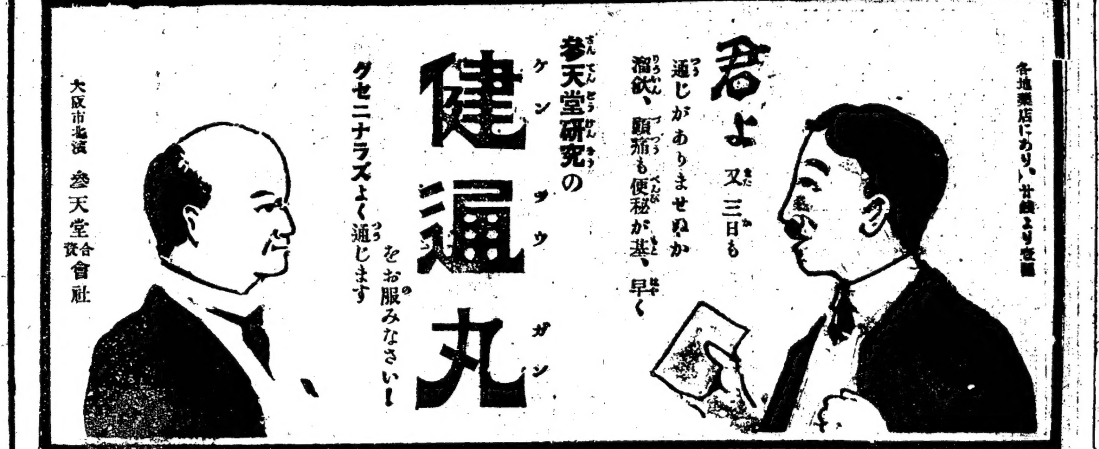 各地藥店にあり、廿錢より壱圓
君よ又三日も
通じがありませぬか
溜飮、頭痛も便秘が基、早く
參天堂研究の
健通丸
ケンツウガン
をお服みなさい!
グセニナラズよく通じます
大阪市北濱 參天堂合資會社